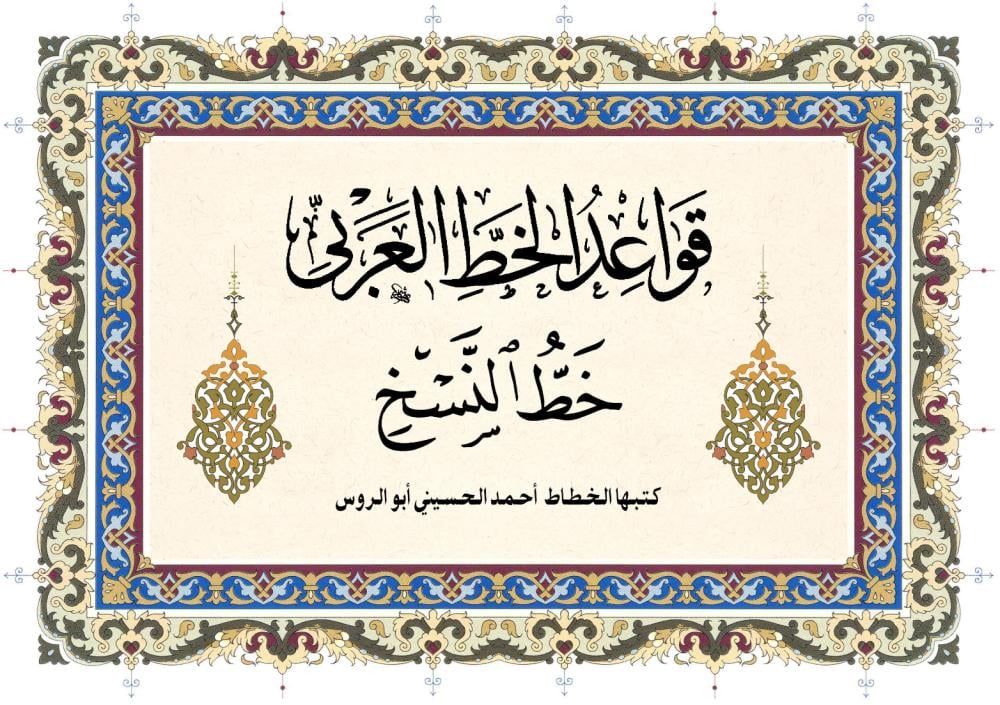 قَوَاعِدُ الخَطِّ العَرَبِيِّ
خَطُّ النَّسْخِ
كتبها الخطاط أحمد الحسيني أبو الروس